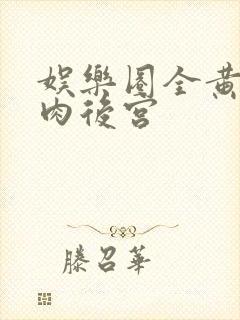 娛樂圈全黃
肉後宮
滕召華